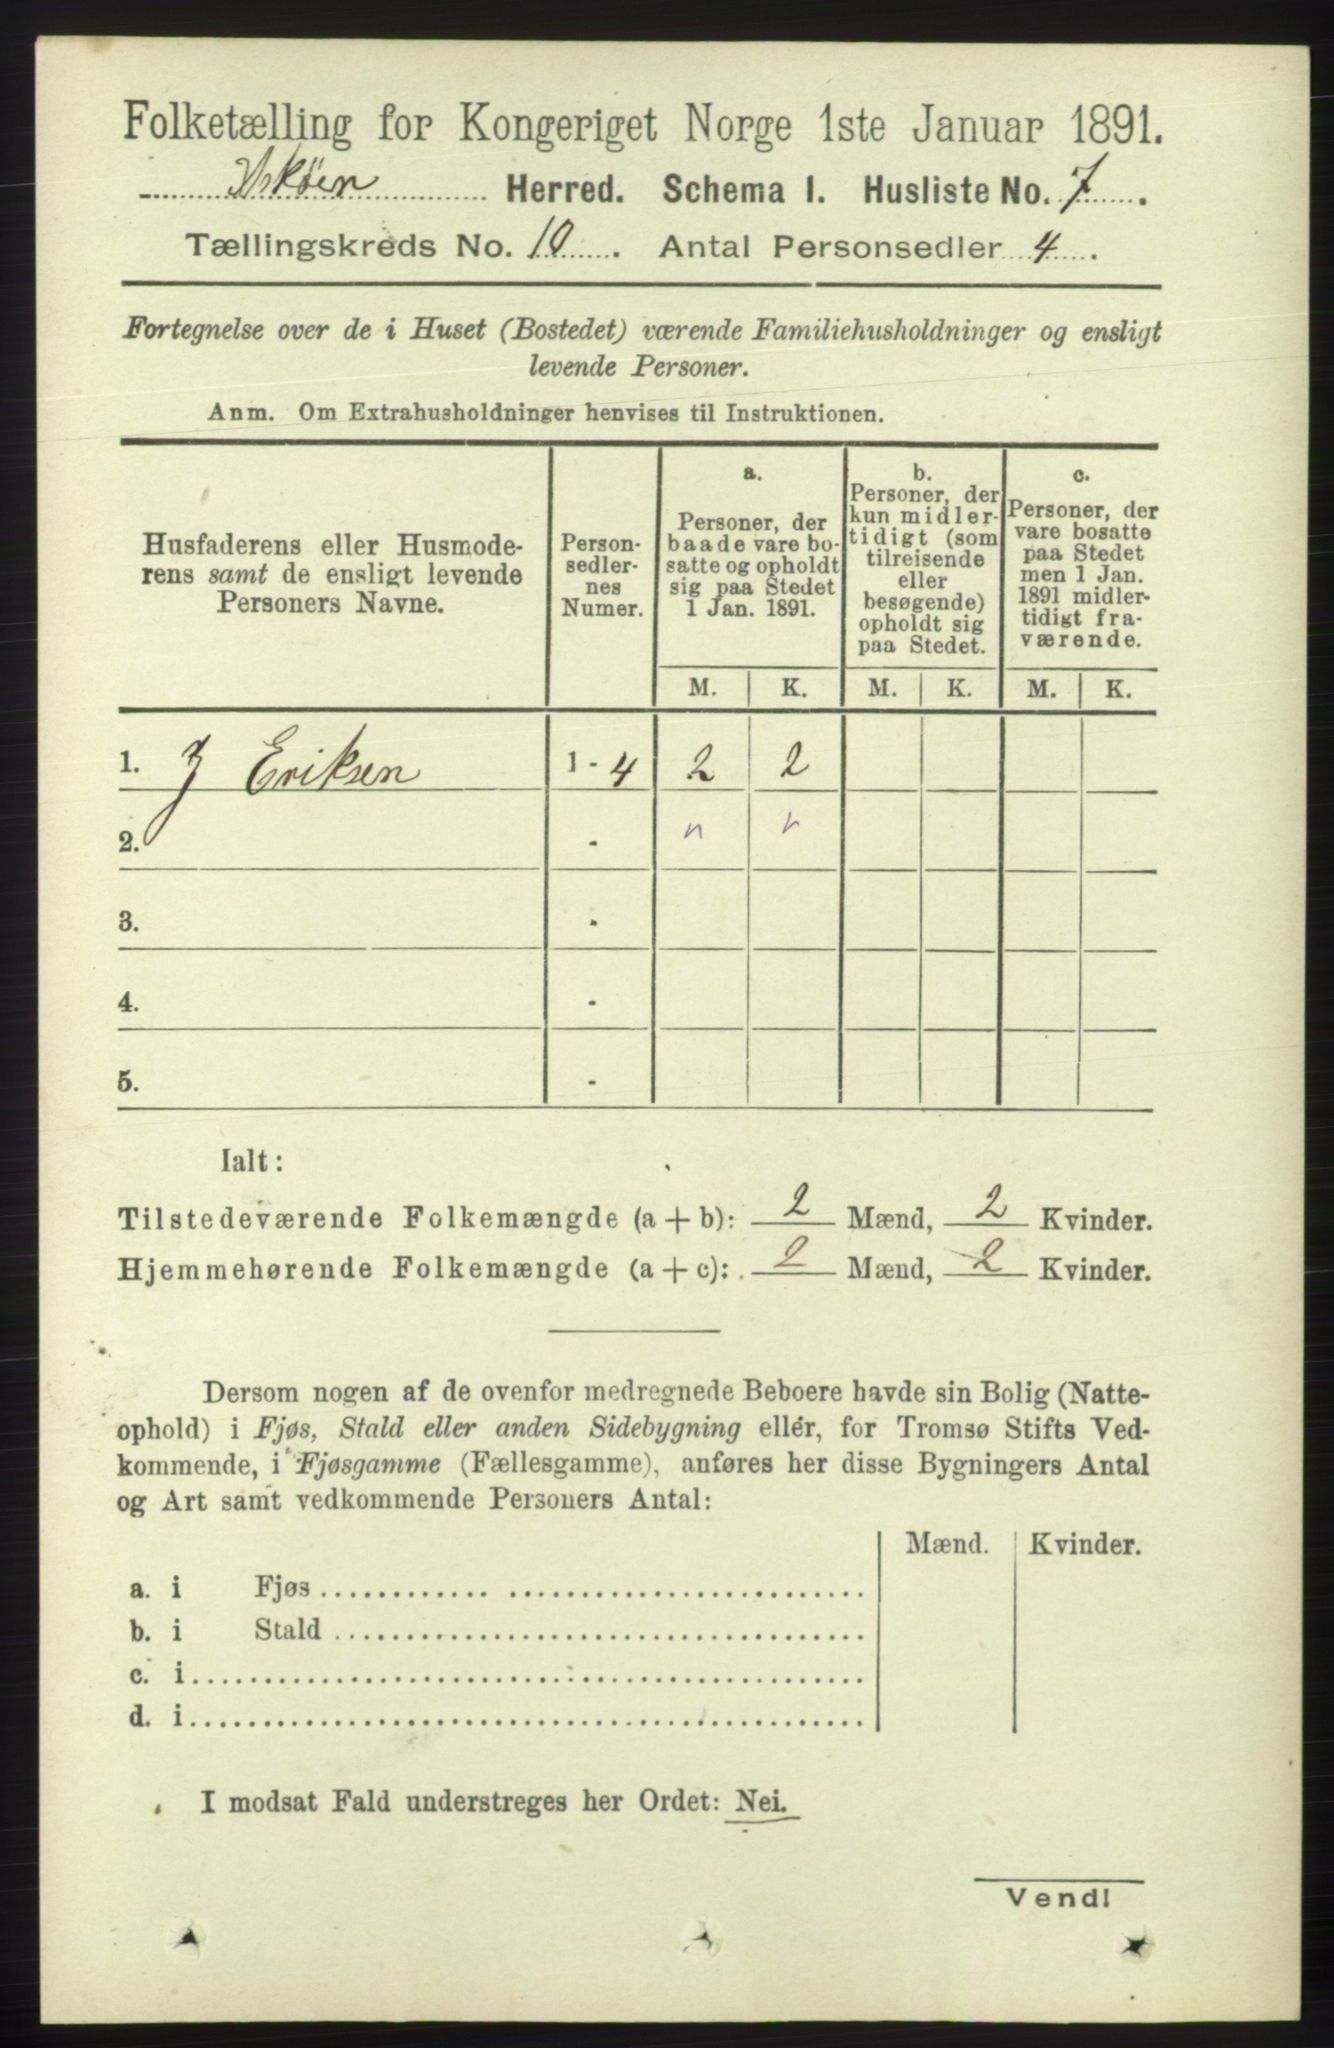 Folketælling for Kongeriget Norge 1ste Januar 1891.
Askøen Herred. Schema 1. Husliste No. 7.
Tællingskreds No. 10. Antal Personsedler 4.
Fortegnelse over de i Huset (Bostedet) værende Familiehusholdninger og ensligt
levende Personer.
Anm. Om Extrahusholdninger henvises til Instruktionen.
Husfaderens eller Husmode-
rens samt de ensligt levende
Personers Navne.
Person-
sedler-
nes
Numer.
a.
Personer, der
baade vare bo-
satte og opholdt
sig paa Stedet
1 Jan. 1891.
b.
Personer, der
kun midler-
tidigt (som
tilreisende
eller
besøgende)
opholdt sig
paa Stedet.
c.
Personer, der
vare bosatte
paa Stedet
men 1 Jan.
1891 midler-
tidigt fra-
værende.
M. K. M. K. M. K.
1. J Eriksen 1 - 4 2 2
2. -
3. -
4. -
5. -
Ialt:
Tilstedeværende Folkemængde (a + b): 2 Mænd, 2 Kvinder.
Hjemmehørende Folkemængde (a + c): 2 Mænd, 2 Kvinder.
Dersom nogen af de ovenfor medregnede Beboere havde sin Bolig (Natte-
ophold) i Fjøs, Stald eller anden Sidebygning eller, for Tromsø Stifts Ved-
kommende, i Fjøsgamme (Fællesgamme), anføres her disse Bygningers Antal
og Art samt vedkommende Personers Antal:
Mænd. Kvinder.
a. i Fjøs
b. i Stald
c. i
d. i
I modsat Fald understreges her Ordet: Nei.
Vend!